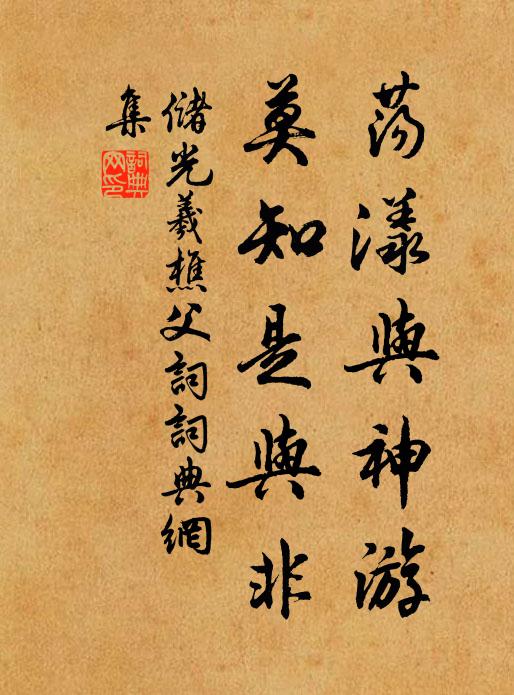 蕩漾與神游
莫知是與非
儲光羲樵父詞詞典網
集
詞典
网印